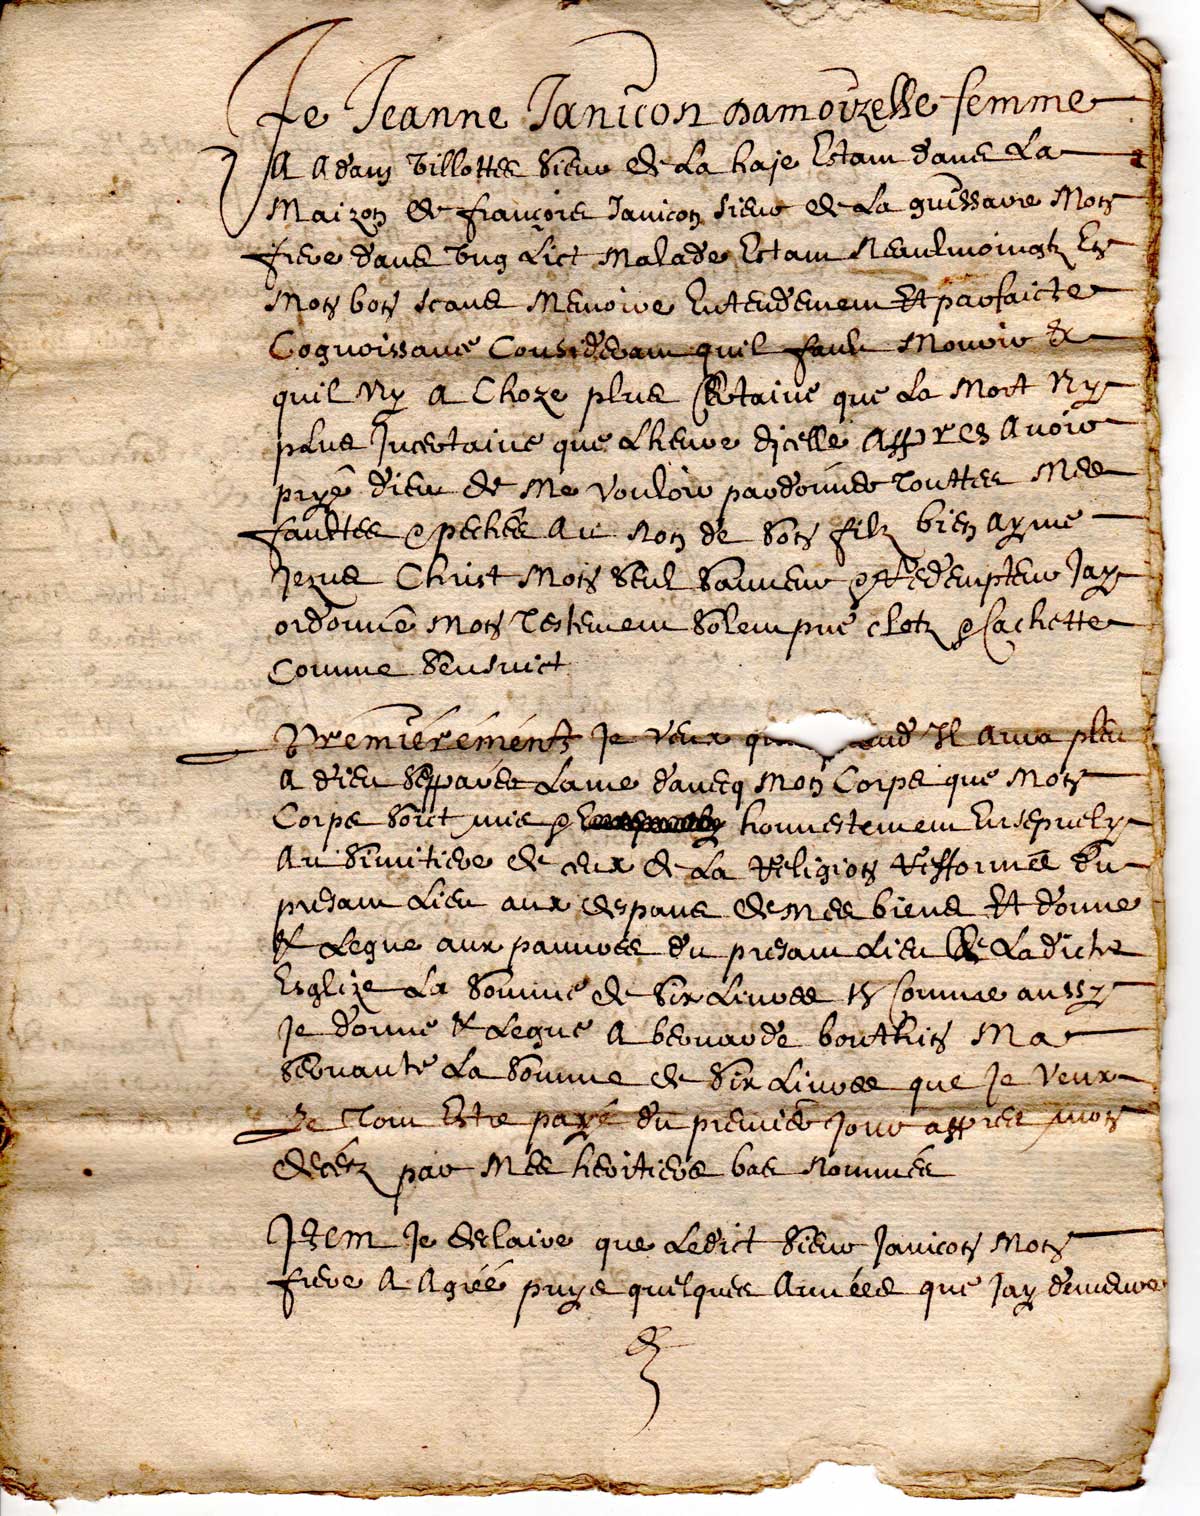 Je Jeanne Janicon damoizelle femme
A Adam Villottes Sieur de La haje Estant dans La
Maizon de françois Janicon sieur de La guissarie Mon
frere dans Ung Lict Malade Estant Neaulmoingtz En
Mon bon scans Memoire Entendement Et parfaicte
Cognoissance Considerant quil fault Mourir &
quil Ny A Choze plus Certaine que La Mort Ny
plus Incertaine que Lheure dicelle Appres Avoir
pryé dieu de Me Vouloir pardonner Touttes Mes
faultes & pechés Au Non de Son filz bien Ayme
Jezus Christ Mon Seul Sauveur & Redempteur Jay
ordonné Mon Testement Solempne clotz & Cachette
Comme Sensuict
Premierementz Je Veux que quand Il Aura pleu
A dieu Sepparer Lame daveq Mon Corps que Mon
Corps Soict mis & honnestement Ensepvely
Au Simitiere de ceux de La Religion Refformée du
presant Lieu aux despans de Mes biens Et donne
& Legue aux pauvres du presant Lieu de Ladicte
Esglize La Somme de Six Livres Et Comme aussy
Je donne & Legue A bernarde bouthin Ma
Servante La Somme de Six Livres que Je Veux
Le Tout Estre payé du premier Jour appres mon
decetz par Mes heritiers bas Nommés
Item Je declaire que Ledict Sieur Janicon Mon
frere A Agréé puys quelques Années que Jay demeure